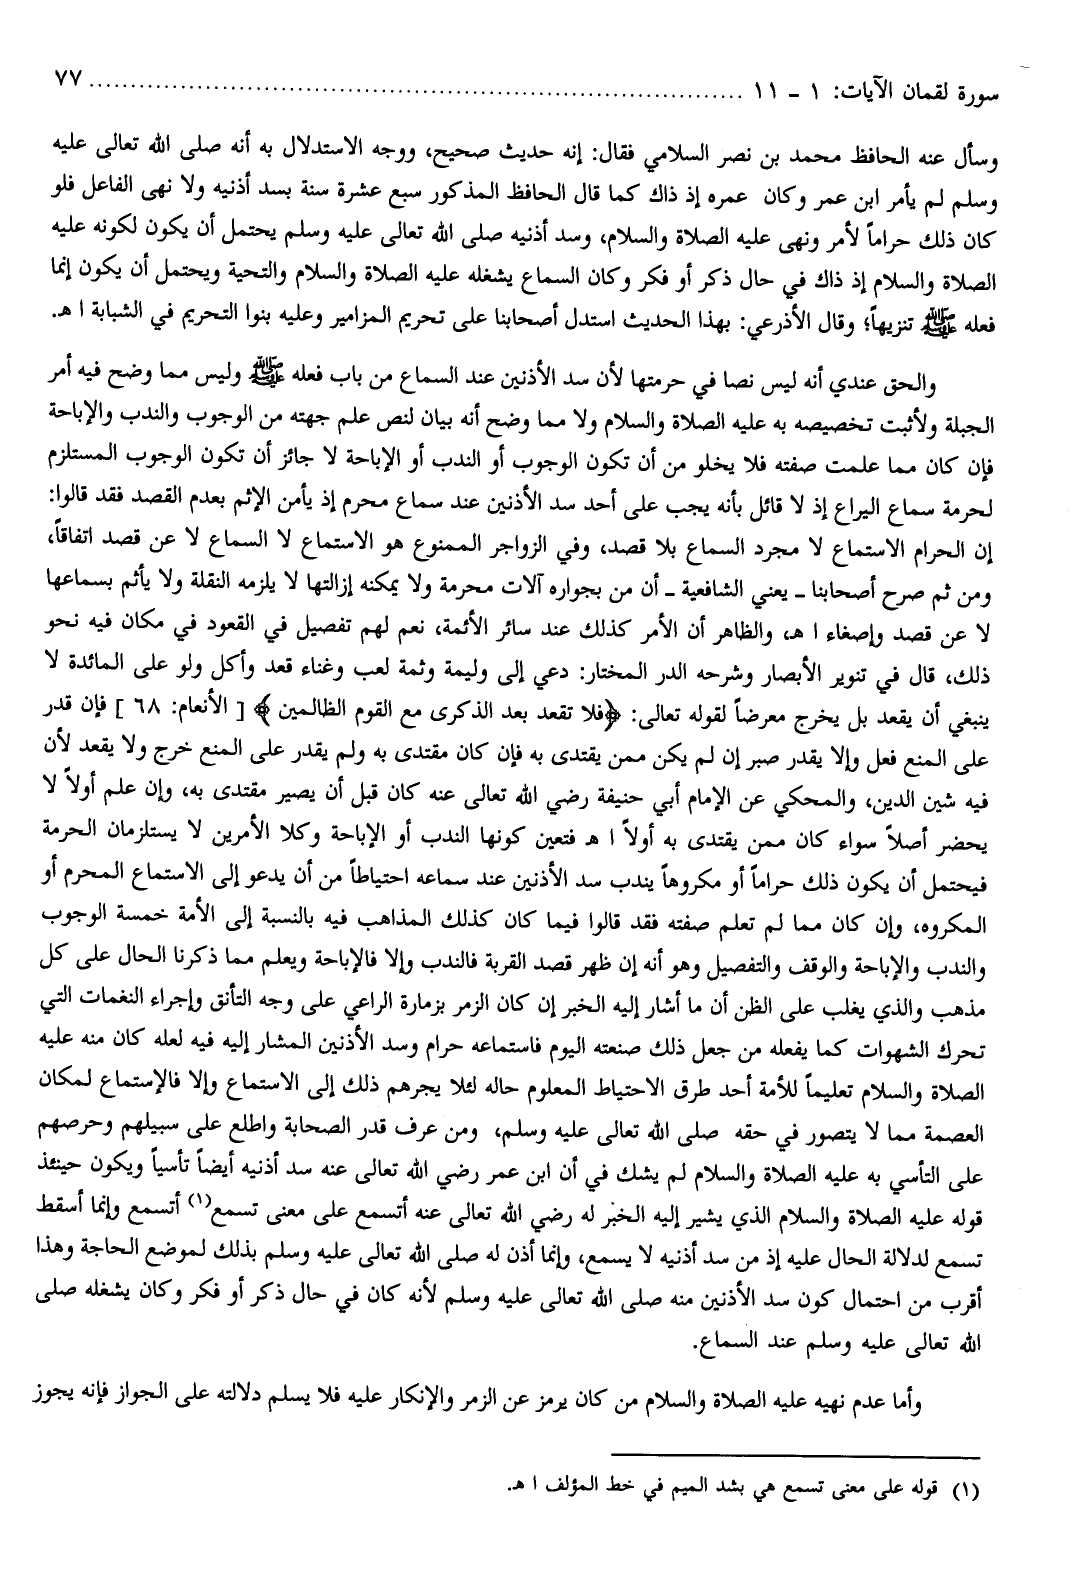 سورة لقمان الآيات: ١ - ١١ ........................................ ٧٧
وسأل عنه الحافظ محمد بن نصر السلامي فقال: إنه حديث صحيح، ووجه الاستدلال به أنه صلى الله تعالى عليه
وسلم لم يأمر ابن عمر وكان عمره إذ ذاك كما قال الحافظ المذكور سبع عشرة سنة بسد أذنيه ولا نهى الفاعل فلو
كان ذلك حراماً لأمر ونهى عليه الصلاة والسلام، وسد أذنيه صلى الله تعالى عليه وسلم يحتمل أن يكون لكونه عليه
الصلاة والسلام إذ ذاك في حال ذكر أو فكر وكان السماع يشغله عليه الصلاة والسلام والتحية ويحتمل أن يكون إنما
فعله ﷺ تنزيهاً؛ وقال الأذرعي: بهذا الحديث استدل أصحابنا على تحريم المزامير وعليه بنوا التحريم في الشبابة ا هـ.
والحق عندي أنه ليس نصا في حرمتها لأن سد الأذنين عند السماع من باب فعله ﷺ وليس مما وضح فيه أمر
الجبلة ولأثبت تخصيصه به عليه الصلاة والسلام ولا مما وضح أنه بيان لنص علم جهته من الوجوب والندب والإباحة
فإن كان مما علمت صفته فلا يخلو من أن تكون الوجوب أو الندب أو الإباحة لا جائز أن تكون الوجوب المستلزم
لحرمة سماع اليراع إذ لا قائل بأنه يجب على أحد سد الأذنين عند سماع محرم إذ يأمن الإثم بعدم القصد فقد قالوا:
إن الحرام الاستماع لا مجرد السماع بلا قصد، وفي الزواجر الممنوع هو الاستماع لا السماع لا عن قصد اتفاقاً،
ومن ثم صرح أصحابنا - يعني الشافعية - أن من بجواره آلات محرمة ولا يمكنه إزالتها لا يلزمه النقلة ولا يأثم بسماعها
لا عن قصد وإصغاء ا هـ، والظاهر أن الأمر كذلك عند سائر الأئمة، نعم لهم تفصيل في القعود في مكان فيه نحو
ذلك، قال في تنوير الأبصار وشرحه الدر المختار: دعي إلى وليمة وثمة لعب وغناء قعد وأكل ولو على المائدة لا
ينبغي أن يقعد بل يخرج معرضاً لقوله تعالى: ﴿فلا تقعد بعد الذكرى مع القوم الظالمين﴾ [ الأنعام: ٦٨ ] فإن قدر
على المنع فعل وإلا يقدر صبر إن لم يكن ممن يقتدى به فإن كان مقتدى به ولم يقدر على المنع خرج ولا يقعد لأن
فيه شين الدين، والمحكي عن الإمام أبي حنيفة رضي الله تعالى عنه كان قبل أن يصير مقتدى به، وإن علم أولاً لا
يحضر أصلاً سواء كان ممن يقتدى به أولاً ا هـ فتعين كونها الندب أو الإباحة وكلا الأمرين لا يستلزمان الحرمة
فيحتمل أن يكون ذلك حراماً أو مكروهاً يندب سد الأذنين عند سماعه احتياطاً من أن يدعو إلى الاستماع المحرم أو
المكروه، وإن كان مما لم تعلم صفته فقد قالوا فيما كان كذلك المذاهب فيه بالنسبة إلى الأمة خمسة الوجوب
والندب والإباحة والوقف والتفصيل وهو أنه إن ظهر قصد القربة فالندب وإلا فالإباحة ويعلم مما ذكرنا الحال على كل
مذهب والذي يغلب على الظن أن ما أشار إليه الخبر إن كان الزمر بزمارة الراعي على وجه التأنق وإجراء النغمات التي
تحرك الشهوات كما يفعله من جعل ذلك صنعته اليوم فاستماعه حرام وسد الأذنين المشار إليه فيه لعله كان منه عليه
الصلاة والسلام تعليماً للأمة أحد طرق الاحتياط المعلوم حاله لئلا يجرهم ذلك إلى الاستماع وإلا فالإستماع لمكان
العصمة مما لا يتصور في حقه صلى الله تعالى عليه وسلم، ومن عرف قدر الصحابة واطلع على سبيلهم وحرصهم
على التأسي به عليه الصلاة والسلام لم يشك في أن ابن عمر رضي الله تعالى عنه سد أذنيه أيضاً تأسياً ويكون حينئذ
قوله عليه الصلاة والسلام الذي يشير إليه الخبر له رضي الله تعالى عنه أتسمع على معنى تسمع(١) أتسمع وإنما أسقط
تسمع لدلالة الحال عليه إذ من سد أذنيه لا يسمع، وإنما أذن له صلى الله تعالى عليه وسلم بذلك لموضع الحاجة وهذا
أقرب من احتمال كون سد الأذنين منه صلى الله تعالى عليه وسلم لأنه كان في حال ذكر أو فكر وكان يشغله صلى
الله تعالى عليه وسلم عند السماع.
وأما عدم نهيه عليه الصلاة والسلام من كان يرمز عن الزمر والإنكار عليه فلا يسلم دلالته على الجواز فإنه يجوز
(١) قوله على معنى تسمع هي بشد الميم في خط المؤلف ا هـ.